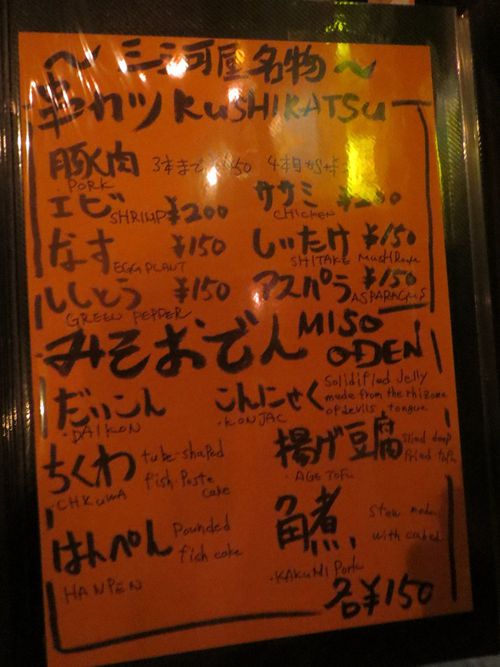 〜三河屋名物〜
串カツ KUSHIKATSU
豚肉 3本まで
PORK
エビ ¥200 ササミ
SHRIMP CHICKEN
なす ¥150 しいたけ ¥150
EGGPLANT SHITAKE MUSHROOM
ししとう ¥150 アスパラ ¥150
GREEN PEPPER ASPARAGUS
みそおでん MISO ODEN
だいこん こんにゃく Solidified Jelly
made from the rhizome
of devils tongue
・DAIKON ・KONJAC
ちくわ tube-shaped
fish-Paste
cake
・CHKUWA
揚げ豆腐 Slied deep
fried tofu
・AGE TOFU
はんぺん Pounded
fish cake
HANPEN
角煮 Stew made
with
・KAKUNI Pork
各¥150